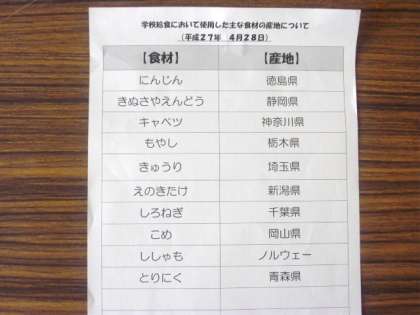 学校給食において使用した主な食材の産地について
(平成27年 4月28日)
【食材】 【産地】
にんじん 徳島県
きぬさやえんどう 静岡県
キャベツ 神奈川県
もやし 栃木県
きゅうり 埼玉県
えのきたけ 新潟県
しろねぎ 千葉県
こめ 岡山県
ししゃも ノルウェー
とりにく 青森県